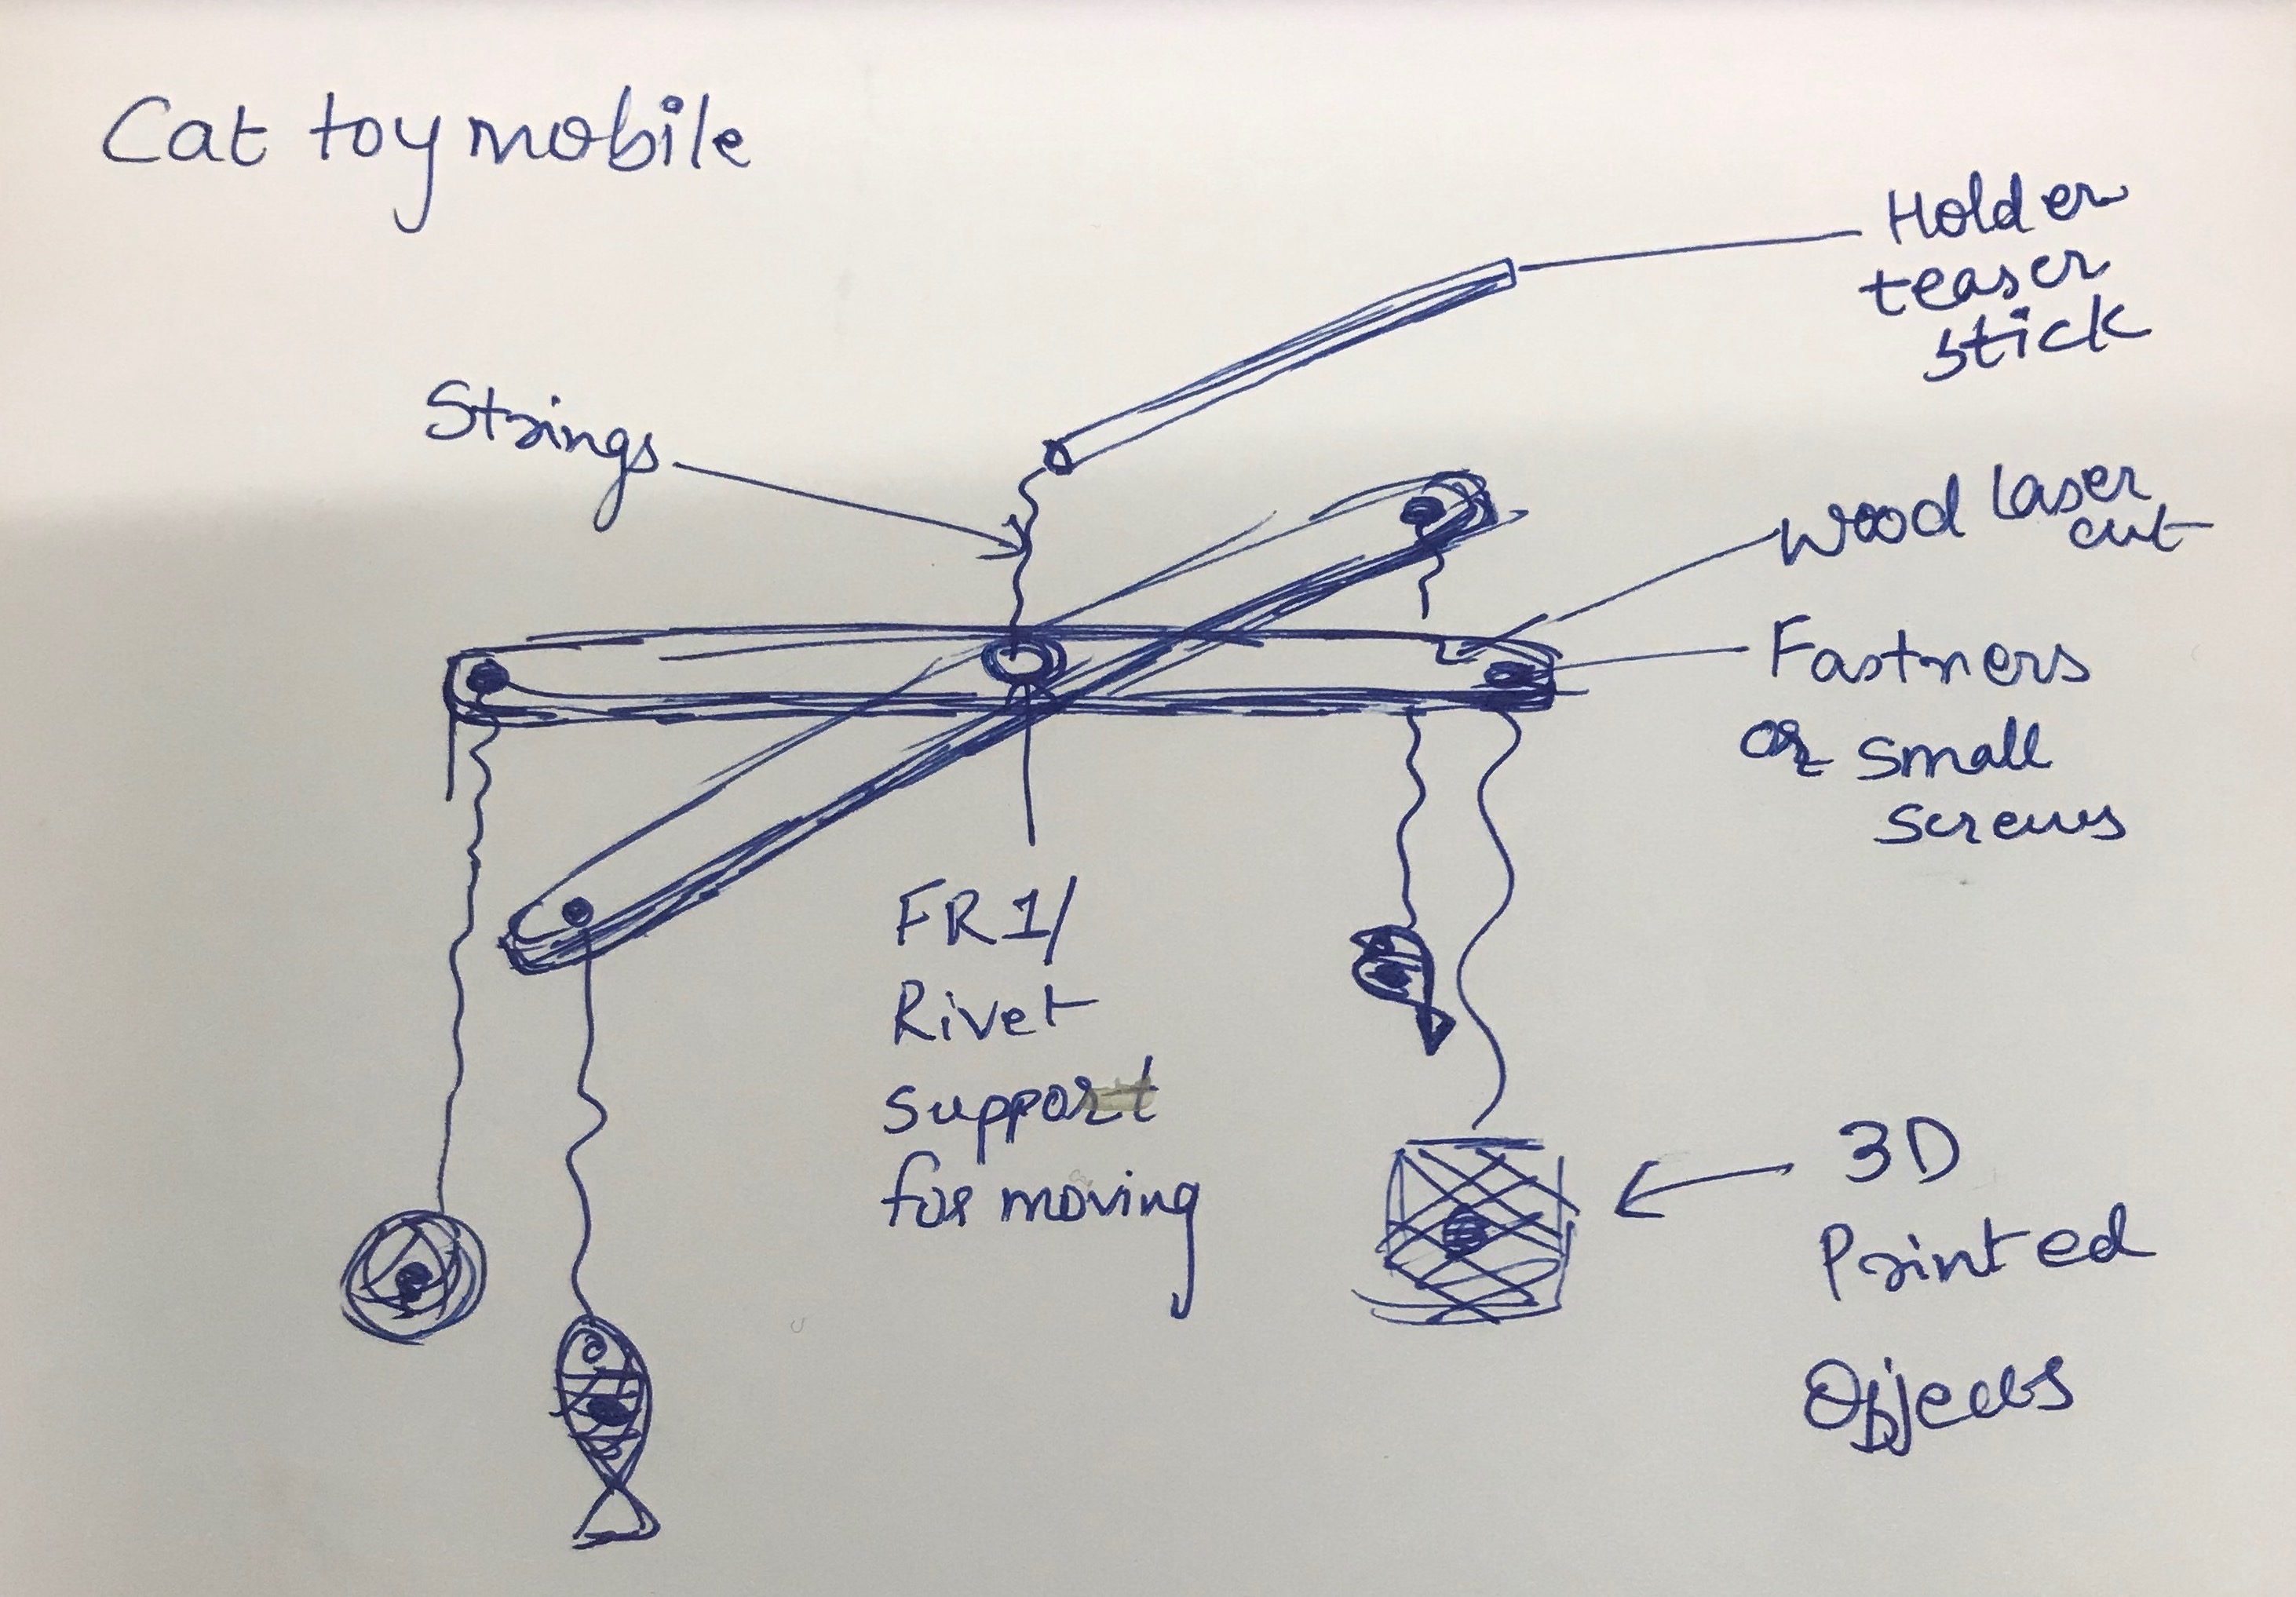 Cat toy mobile
Holder
teaser
stick
Strings
Wood laser
cut
Fastners
or small
screws
FR1/
Rivet
support
for moving
3D
Printed
Objects